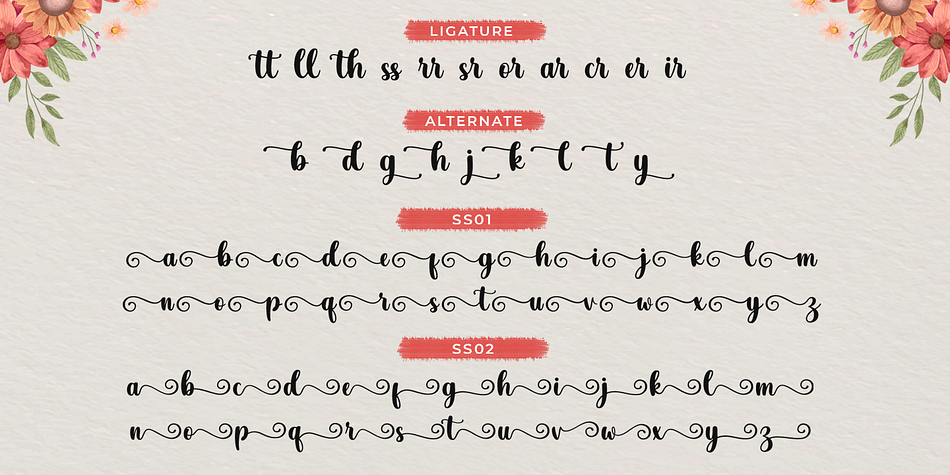 LIGATURE
tt ll th ss rr sr or ar cr er ir
ALTERNATE
b d g h j k l t y
SS01
a b c d e f g h i j k l m
n o p q r s t u v w x y z
SS02
a b c d e f g h i j k l m
n o p q r s t u v w x y z